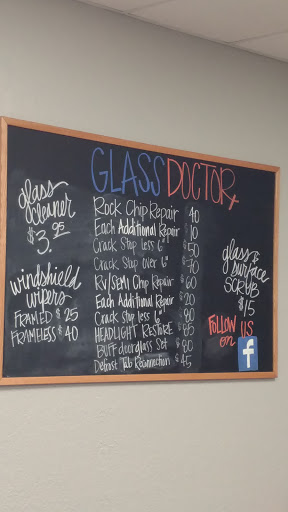 GLASS DOCTOR
glass
cleaner
$3.95
windshield
wipers
FRAMED $25
FRAMELESS $40
Rock Chip Repair 40
Each Additional Repair $10
Crack Stop less 6" $50
Crack Stop over 6" $70
RV/SEMI Chip Repair $60
Each Additional Repair $20
Crack Stop less 6" $80
HEADLIGHT RESTORE $85
BUFF door glass Set $80
Defrost Tab Reconnection $45
glass &
surface
SCRUB
$15
FOLLOW US
on f